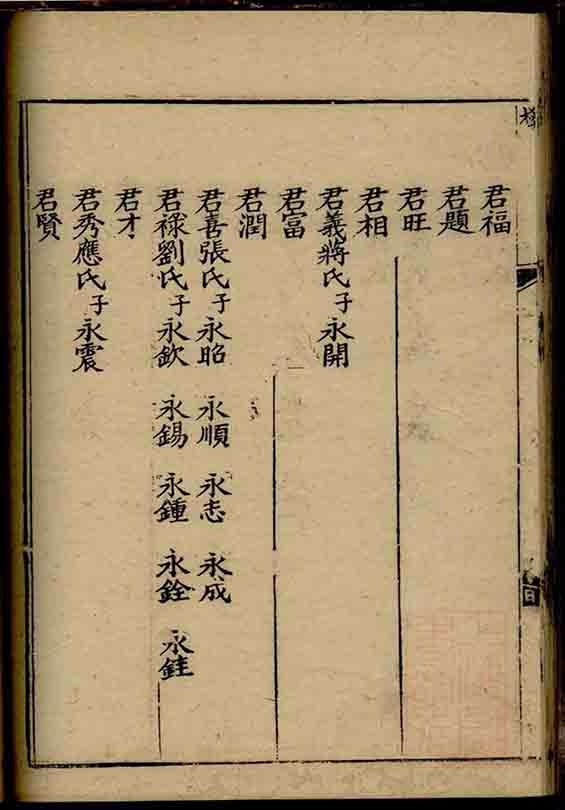 君福
君題
君旺
君相
君義蔣氏子永開
君富
君潤
君喜張氏子永昭 永順 永志 永成
君祿劉氏子永欽 永錫 永鍾 永銓 永銈
君才
君秀應氏子永震
君賢